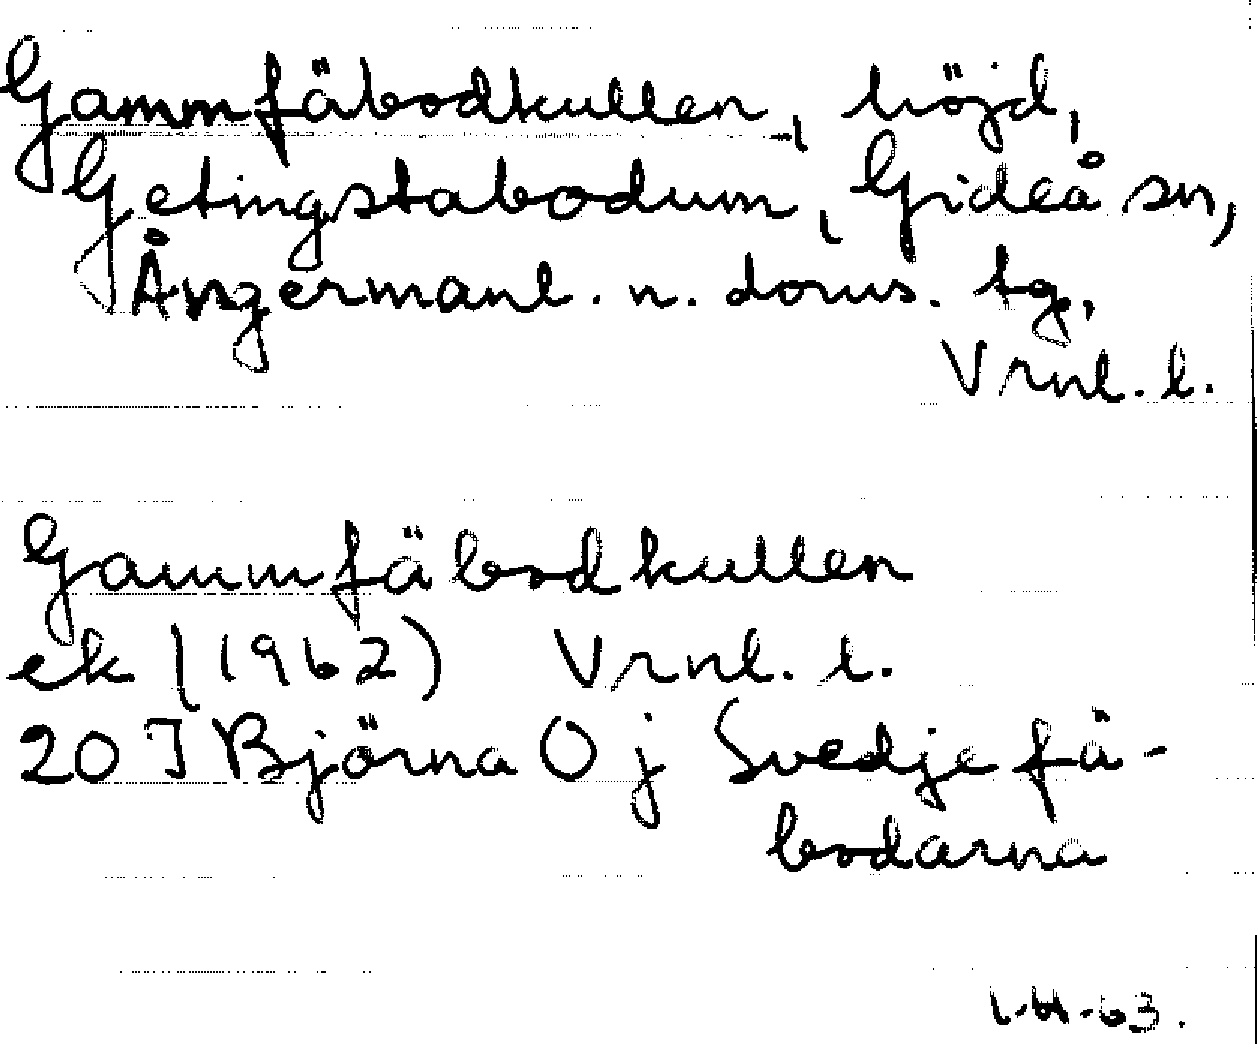 Gammfäbodkullen, höjd,
Getingstabodum, Gideå sn,
Ångermanl. n. doms. tg,
Vrnl. l.
Gammfäbodkullen
ek (1962) Vrnl. l.
20 I Björna O j Svedjefä-
bodarna